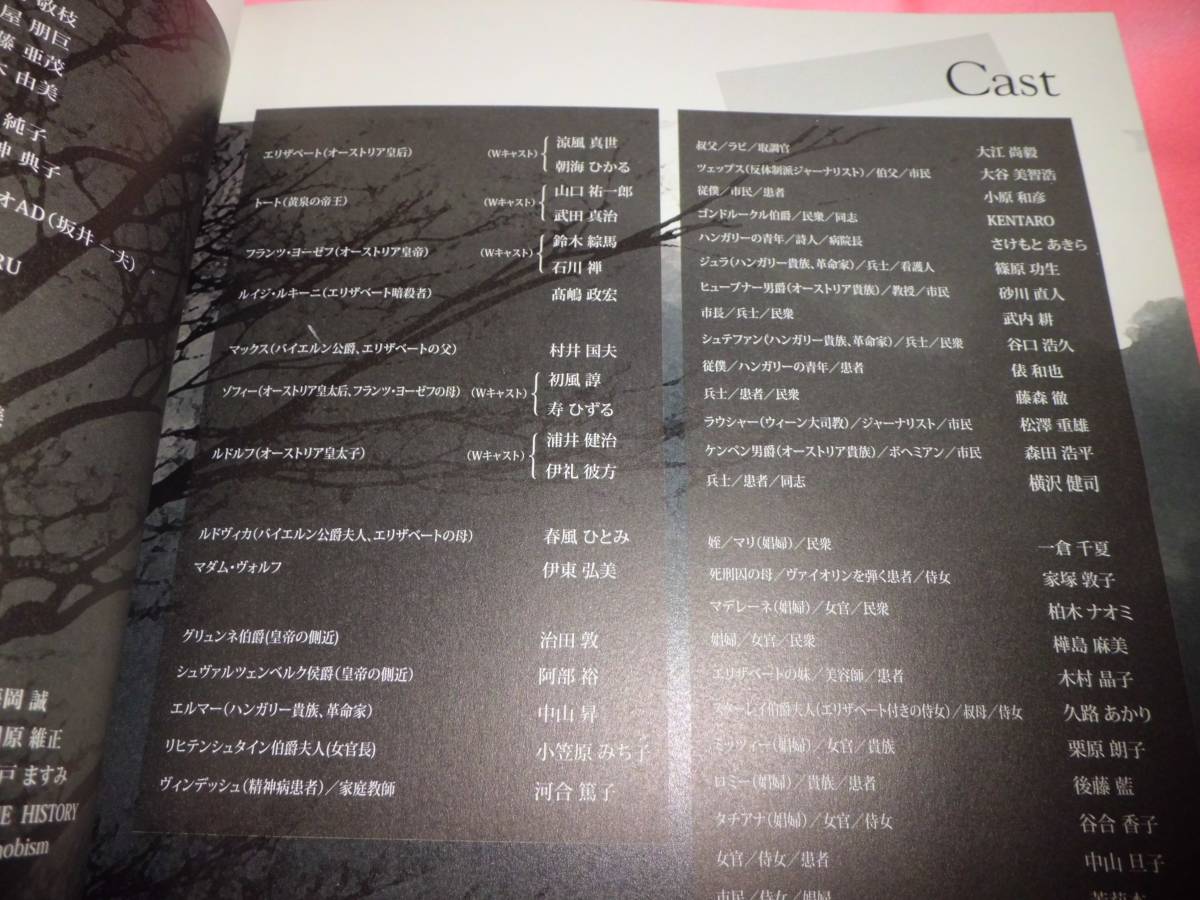 敬枝
屋 朋巨
藤 亜茂
由美
純子
典子
オAD(坂井一夫)
RU
岡 誠
原 維正
戸 ますみ
HE HISTORY
nobism
Cast
エリザベート(オーストリア皇后) (Wキャスト) 涼風 真世
朝海 ひかる
トート(黄泉の帝王) (Wキャスト) 山口 祐一郎
武田 真治
フランツ・ヨーゼフ(オーストリア皇帝) (Wキャスト) 鈴木 綜馬
石川 禅
ルイジ・ルキーニ(エリザベート暗殺者) 髙嶋 政宏
マックス(バイエルン公爵、エリザベートの父) 村井 国夫
ゾフィー(オーストリア皇太后、フランツ・ヨーゼフの母) (Wキャスト) 初風 諄
寿 ひずる
ルドルフ(オーストリア皇太子) (Wキャスト) 浦井 健治
伊礼 彼方
ルドヴィカ(バイエルン公爵夫人、エリザベートの母) 春風 ひとみ
マダム・ヴォルフ 伊東 弘美
グリュンネ伯爵(皇帝の側近) 治田 敦
シュヴァルツェンベルク侯爵(皇帝の側近) 阿部 裕
エルマー(ハンガリー貴族、革命家) 中山 昇
リヒテンシュタイン伯爵夫人(女官長) 小笠原 みち子
ヴィンデッシュ(精神病患者)／家庭教師 河合 篤子
叔父／ラビ／取調官 大江 尚毅
ツェップス(反体制派ジャーナリスト)／伯父／市民 大谷 美智浩
従僕／市民／患者 小原 和彦
ゴンドルークル伯爵／民衆／同志 KENTARO
ハンガリーの青年／詩人／病院長 さけもと あきら
ジュラ(ハンガリー貴族、革命家)／兵士／看護人 篠原 功生
ヒューブナー男爵(オーストリア貴族)／教授／市民 砂川 直人
市長／兵士／民衆 武内 耕
シュテファン(ハンガリー貴族、革命家)／兵士／民衆 谷口 浩久
従僕／ハンガリーの青年／患者 俵 和也
兵士／患者／民衆 藤森 徹
ラウシャー(ウィーン大司教)／ジャーナリスト／市民 松澤 重雄
ケンペン男爵(オーストリア貴族)／ボヘミアン／市民 森田 浩平
兵士／患者／同志 横沢 健司
姪／マリ(娼婦)／民衆 一倉 千夏
死刑囚の母／ヴァイオリンを弾く患者／侍女 家塚 敦子
マデレーネ(娼婦)／女官／民衆 柏木 ナオミ
娼婦／女官／民衆 樺島 麻美
エリザベートの妹／美容師／患者 木村 晶子
スターレイ伯爵夫人(エリザベート付きの侍女)／叔母／侍女 久路 あかり
ミッツィー(娼婦)／女官／貴族 栗原 朗子
ロミー(娼婦)／貴族／患者 後藤 藍
タチアナ(娼婦)／女官／侍女 谷合 香子
女官／侍女／患者 中山 旦子
市民／侍女／娼婦